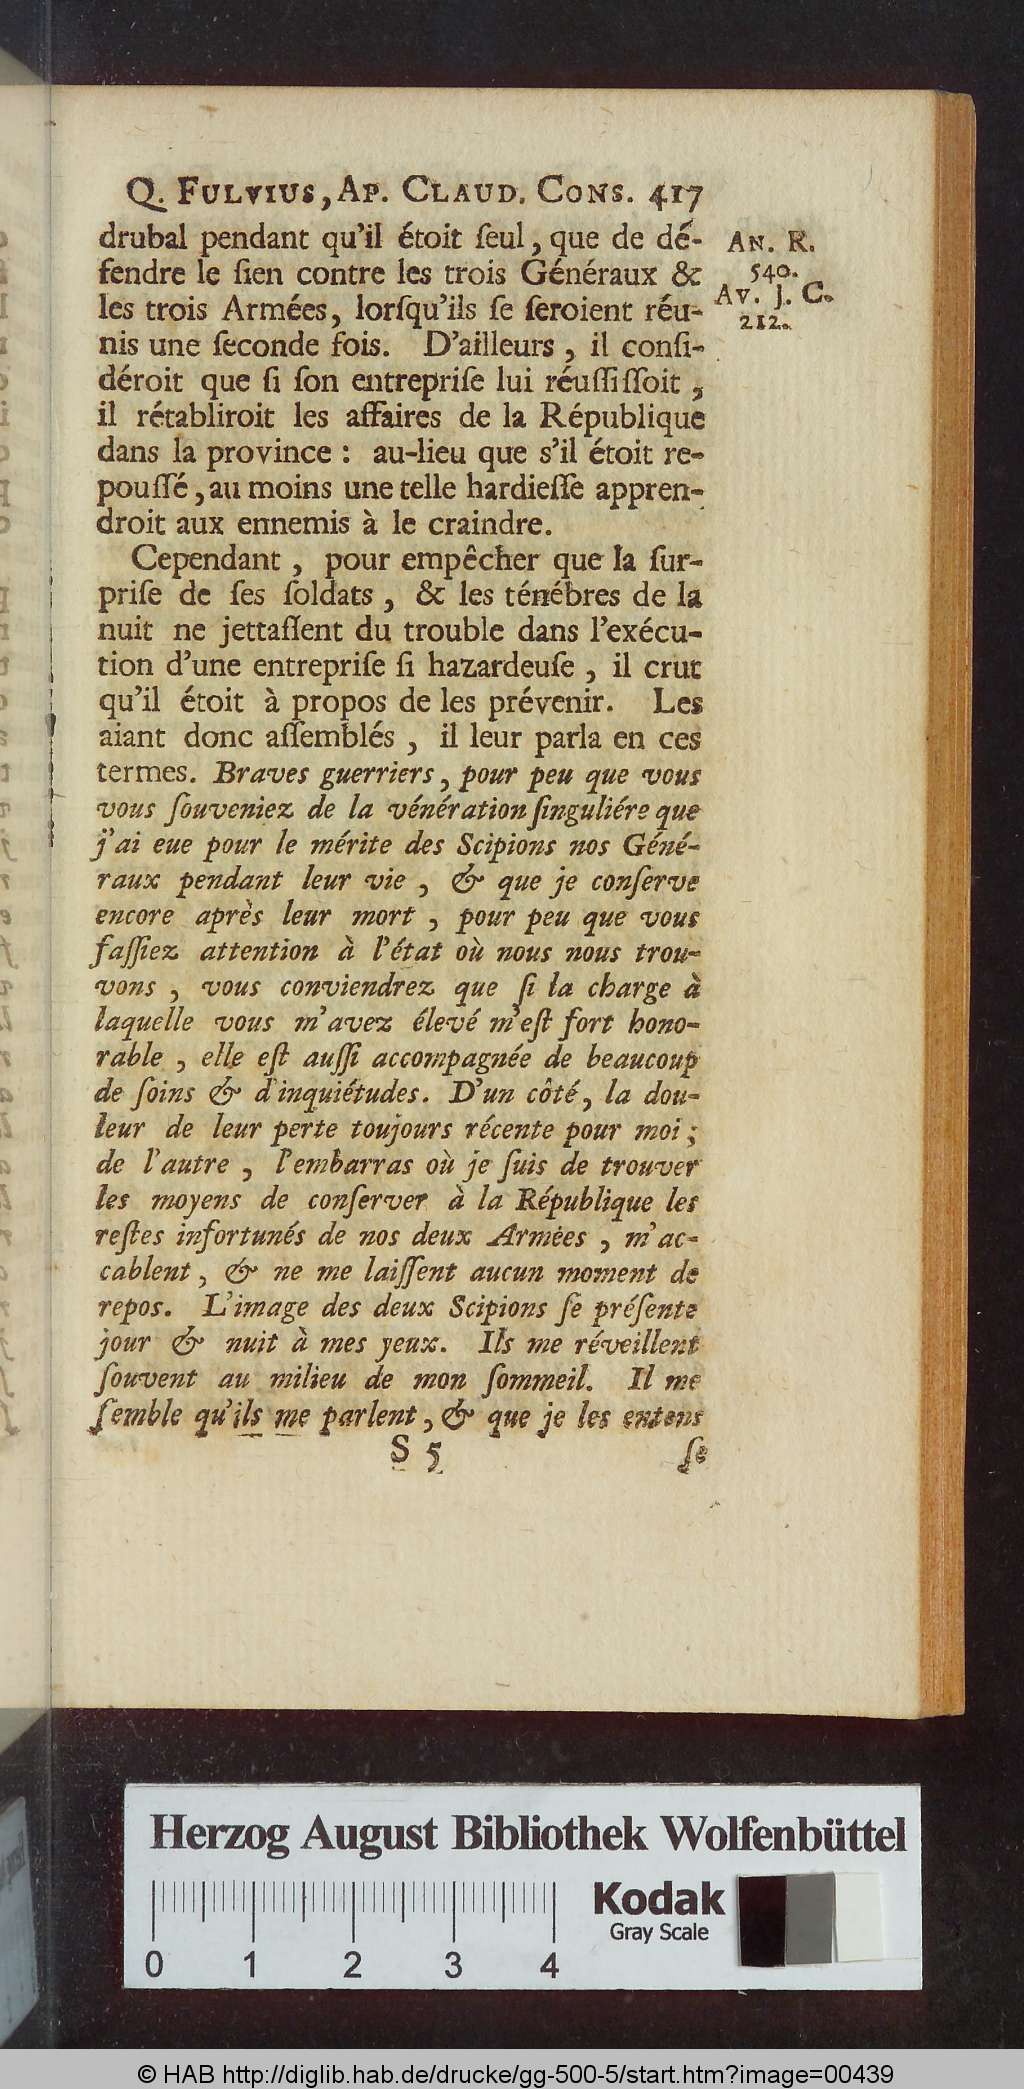 Q. FULVIUS, AP. CLAUD. CONS. 417
drubal pendant qu'il étoit ſeul, que de dé-
fendre le ſien contre les trois Généraux &
les trois Armées, lorſqu'ils ſe ſeroient réu-
nis une ſeconde fois. D'ailleurs, il conſi-
déroit que ſi ſon entrepriſe lui réuſſiſſoit,
il rétabliroit les affaires de la République
dans la province : au-lieu que s'il étoit re-
pouſſé, au moins une telle hardieſſe appren-
droit aux ennemis à le craindre.
Cependant, pour empêcher que la ſur-
priſe de ſes ſoldats, & les ténébres de la
nuit ne jettaſſent du trouble dans l'exécu-
tion d'une entrepriſe ſi hazardeuſe, il crut
qu'il étoit à propos de les prévenir. Les
aiant donc aſſemblés, il leur parla en ces
termes. Braves guerriers, pour peu que vous
vous ſouveniez de la vénération ſinguliére que
j'ai eue pour le mérite des Scipions nos Géné-
raux pendant leur vie, & que je conſerve
encore après leur mort, pour peu que vous
faſſiez attention à l'état où nous nous trou-
vons, vous conviendrez que ſi la charge à
laquelle vous m'avez élevé m'eſt fort hono-
rable, elle eſt auſſi accompagnée de beaucoup
de ſoins & d'inquiétudes. D'un côté, la dou-
leur de leur perte toujours récente pour moi;
de l'autre, l'embarras où je ſuis de trouver
les moyens de conſerver à la République les
reſtes infortunés de nos deux Armées, m'ac-
cablent, & ne me laiſſent aucun moment de
repos. L'image des deux Scipions ſe préſente
jour & nuit à mes yeux. Ils me réveillent
ſouvent au milieu de mon ſommeil. Il me
ſemble qu'ils me parlent, & que je les entens
S 5 ſe
AN. R.
540.
AV. J. C.
212.
Herzog August Bibliothek Wolfenbüttel
Kodak
Gray Scale
0 1 2 3 4
© HAB http://diglib.hab.de/drucke/gg-500-5/start.htm?image=00439